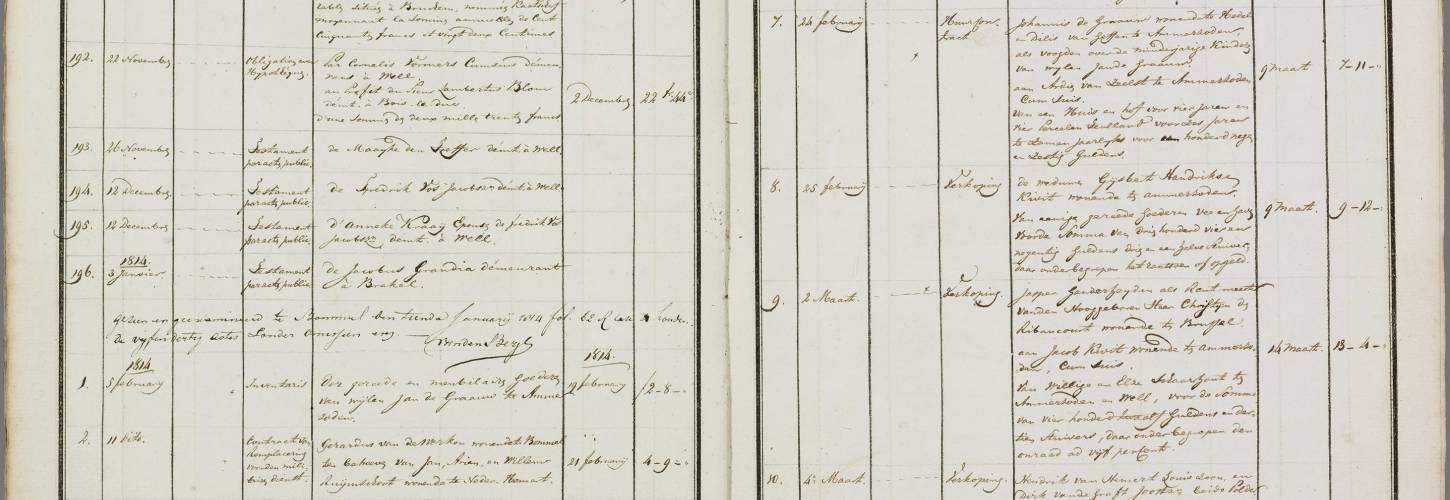 moyennant la Somme annuelle de Cent
Cinquante francs et vingt deux Centimes
192. 22 Novembre Obligation avec Hypothèque
Par Cornelis
à Well
au Profit du Sieur Lambertus Blom
demt. à Bois le duc
d'une Somme de deux mille trente francs
2 Decembre 22 fr. 44 c
193. 26 Novembre Testament par acte public
de Maayke den demt. à Well.
194. 12 Decembre Testament par acte public
de Fredrik Vos Jacobszn demt. à Well
195. 12 Decembre Testament par acte public
d'Anneke Kraay Epouse de fredrik Vos
Jacobszn demt. à Well.
1814.
196. 3 Janvier Testament par acte public
de Jacobus Grandia demeurant
à Brakel
Gezien en gevisiteerd te Bommel den tiende January 1814 fol. 62 R
de vijfendertig actes Zonder
1814 1814.
1. 5 february Inventaris
Der gereede en meubilaire goederen
van wijlen Jan de Graauw te Amme
zoden.
19 february 12-8-
2. 11 dito. Contract van Remplacering voor den militairen dienst
Gerardus van de Werken wonende te Bommel
ten behoeve van Jan, Arien, en Willem
wonende te Neder Hemert.
21 february 4-9-
7. 24 february Huurcontract
Johannis de Graauw wonende te Hedel
en Dilis van Geffen te Ammerzoden,
als voogden over de minderjarige Kinderen
van wijlen Jan de Graauw.
aan Ardis van Zeelst te Ammerzoden
Cum Suis.
van een Huis en hof voor vier jaren en
vier Perceelen voor zes jaren
te Zamen jaarlyks voor een honderd negen
en Zestig Guldens.
9 Maart 7-11-
8. 25 february Verkoping
de weduwe Gijsbert Hendriksen
Kivit wonende te ammerzoden.
Van eenige gereede Goederen
Somma van drie honderd vier en
negentig Guldens drie en een halve Stuiver,
daar onder begrepen het of opgeld.
9 Maart. 9-12-
9. 2 Maart Verkoping.
Jasper Ganderheyden als Rentmeester
van den Hooggeboren Heer Christijn de
Ribaucourt wonende te Brussel.
aan Jacob Kivit wonende te Ammerzo-
den, Cum Suis.
Van Willige en Else Schaarhout te
Ammerzoden en Well, voor de Somme
van vier honderd twaalf Guldens en der-
tien Stuivers, daar onder begrepen den
onraad ad vijf percent.
14 Maart. 13-4-
10. 4 Maart. Verkoping.
Hendrik van Hemert Louis Zoon, en
Dirk van de Graft Joosten, beide Polder